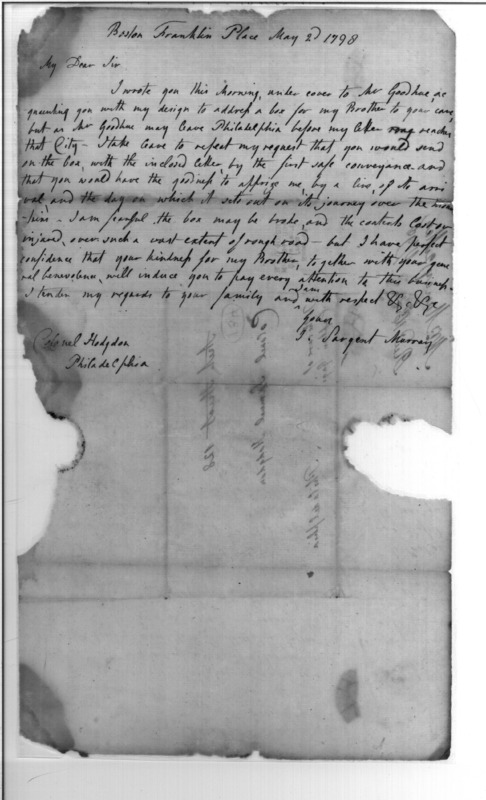 Boston Franklin Place May 2d 1798
My Dear Sir
I wrote you this Morning, under cover to Mr Goodhue, ac
quainting you with my design to address a box for my Brother to your care,
but as Mr Goodhue may leave Philadelphia before my letter reaches
that City - I take leave to repeat my request that you would send
on the box, with the inclosed letter by the first safe conveyance and
that you would have the goodness to apprize me, by a line, of its arri
val and the day on which it sets out on its journey over the moun
tains - I am fearful the box may be broke, and the contents lost or
injured, over such a vast extent of rough road - but I have perfect
confidence that your kindness for my Brother, together with your gene
ral benevolence, will induce you to pay every attention to this business.
I tender my regards to your family and am with respect &c &c
Yours
J. Sargent Murray
Colonel Hodgdon
Philadelphia
Colonel Samuel Hodgdon
Street 128
Philadelphia